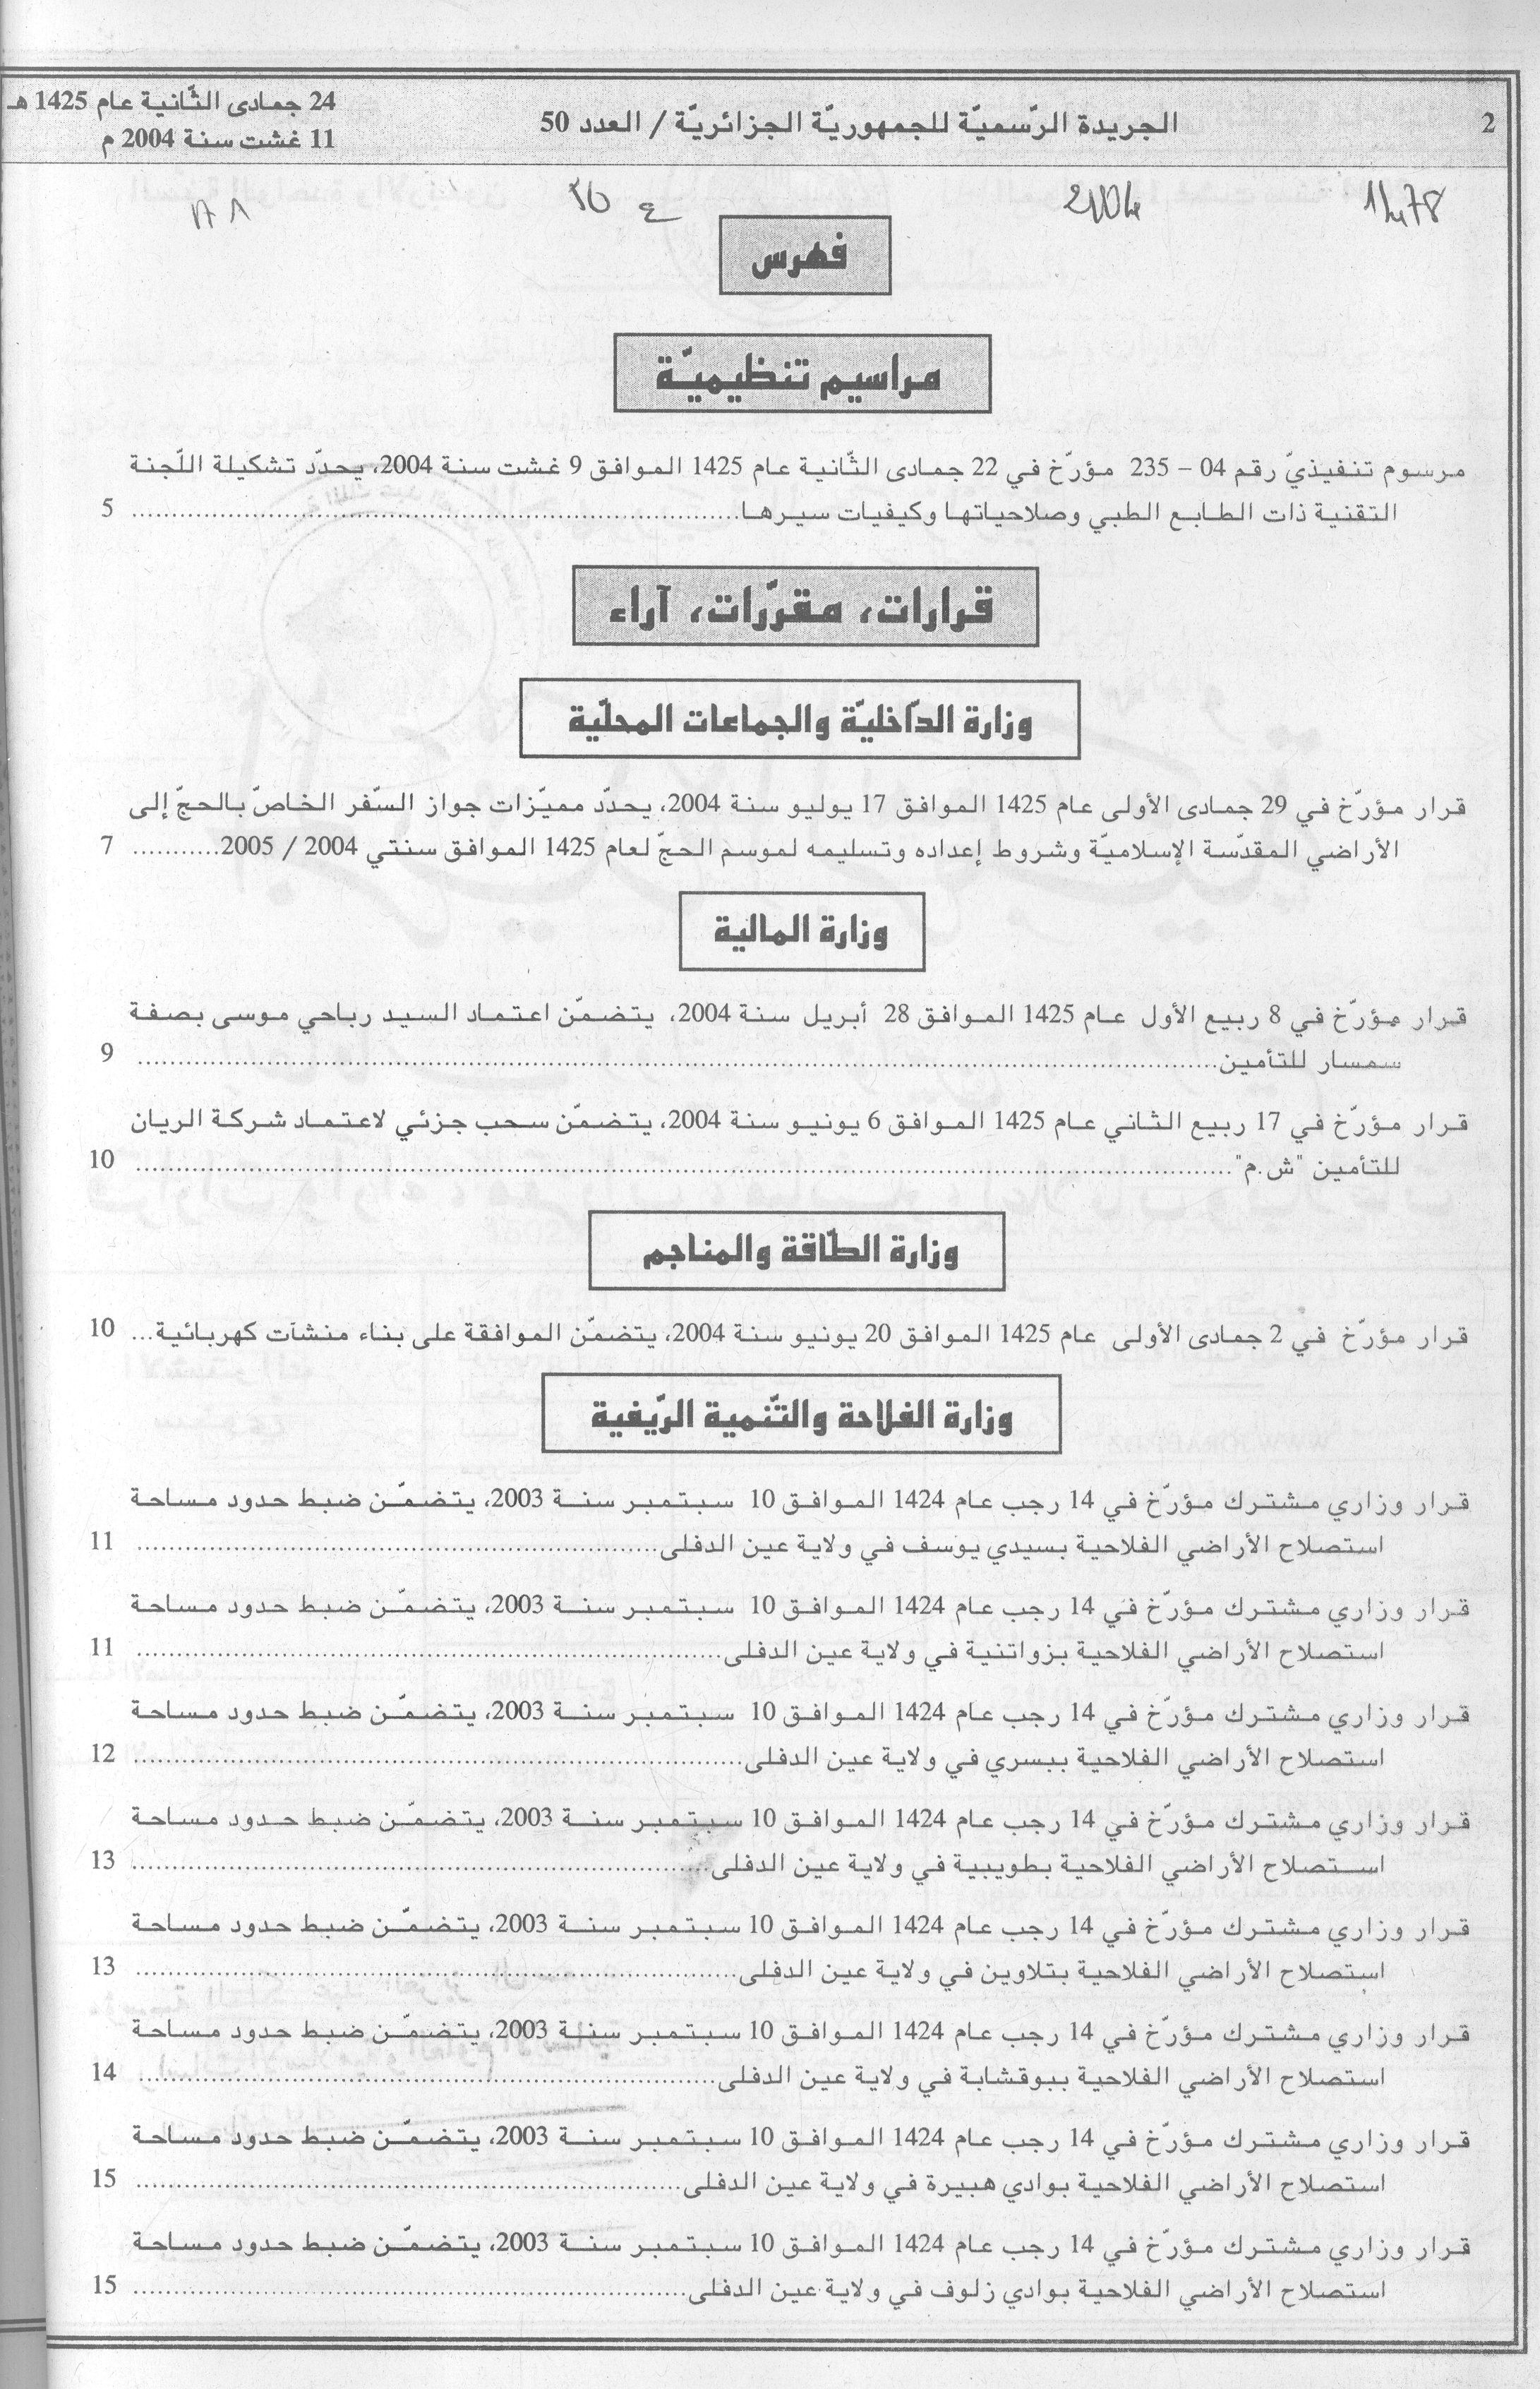 2
الجريدة الرّسميّة للجمهوريّة الجزائريّة / العدد 50
24 جمادى الثّانية عام 1425 هـ
11 غشت سنة 2004 م
فهرس
مراسيم تنظيميّة
مرسوم تنفيذيّ رقم 04 – 235 مؤرّخ في 22 جمادى الثّانية عام 1425 الموافق 9 غشت سنة 2004، يحدّد تشكيلة اللّجنة
التقنية ذات الطابع الطبي وصلاحياتها وكيفيات سيرها........................ 5
قرارات، مقرّرات، آراء
وزارة الدّاخليّة والجماعات المحلّية
قرار مؤرّخ في 29 جمادى الأولى عام 1425 الموافق 17 يوليو سنة 2004، يحدّد مميّزات جواز السّفر الخاصّ بالحجّ إلى
الأراضي المقدّسة الإسلاميّة وشروط إعداده وتسليمه لموسم الحجّ لعام 1425 الموافق سنتي 2004 / 2005........... 7
وزارة المالية
قرار مؤرّخ في 8 ربيع الأول عام 1425 الموافق 28 أبريل سنة 2004، يتضمّن اعتماد السيد رباحي موسى بصفة
سمسار للتأمين........................ 9
قرار مؤرّخ في 17 ربيع الثاني عام 1425 الموافق 6 يونيو سنة 2004، يتضمّن سحب جزئي لاعتماد شركة الريان
للتأمين "ش.م"........................ 10
وزارة الطّاقة والمناجم
قرار مؤرّخ في 2 جمادى الأولى عام 1425 الموافق 20 يونيو سنة 2004، يتضمّن الموافقة على بناء منشآت كهربائية... 10
وزارة الفلاحة والتّنمية الرّيفية
قرار وزاري مشترك مؤرّخ في 14 رجب عام 1424 الموافق 10 سبتمبر سنة 2003، يتضمّن ضبط حدود مساحة
استصلاح الأراضي الفلاحية بسيدي يوسف في ولاية عين الدفلى........................ 11
قرار وزاري مشترك مؤرّخ في 14 رجب عام 1424 الموافق 10 سبتمبر سنة 2003، يتضمّن ضبط حدود مساحة
استصلاح الأراضي الفلاحية بزواتنية في ولاية عين الدفلى........................ 11
قرار وزاري مشترك مؤرّخ في 14 رجب عام 1424 الموافق 10 سبتمبر سنة 2003، يتضمّن ضبط حدود مساحة
استصلاح الأراضي الفلاحية ببسري في ولاية عين الدفلى........................ 12
قرار وزاري مشترك مؤرّخ في 14 رجب عام 1424 الموافق 10 سبتمبر سنة 2003، يتضمّن ضبط حدود مساحة
استصلاح الأراضي الفلاحية بطويبية في ولاية عين الدفلى........................ 13
قرار وزاري مشترك مؤرّخ في 14 رجب عام 1424 الموافق 10 سبتمبر سنة 2003، يتضمّن ضبط حدود مساحة
استصلاح الأراضي الفلاحية بتلاوين في ولاية عين الدفلى........................ 13
قرار وزاري مشترك مؤرّخ في 14 رجب عام 1424 الموافق 10 سبتمبر سنة 2003، يتضمّن ضبط حدود مساحة
استصلاح الأراضي الفلاحية ببوقشابة في ولاية عين الدفلى........................ 14
قرار وزاري مشترك مؤرّخ في 14 رجب عام 1424 الموافق 10 سبتمبر سنة 2003، يتضمّن ضبط حدود مساحة
استصلاح الأراضي الفلاحية بوادي هبيرة في ولاية عين الدفلى........................ 15
قرار وزاري مشترك مؤرّخ في 14 رجب عام 1424 الموافق 10 سبتمبر سنة 2003، يتضمّن ضبط حدود مساحة
استصلاح الأراضي الفلاحية بوادي زلوف في ولاية عين الدفلى........................ 15